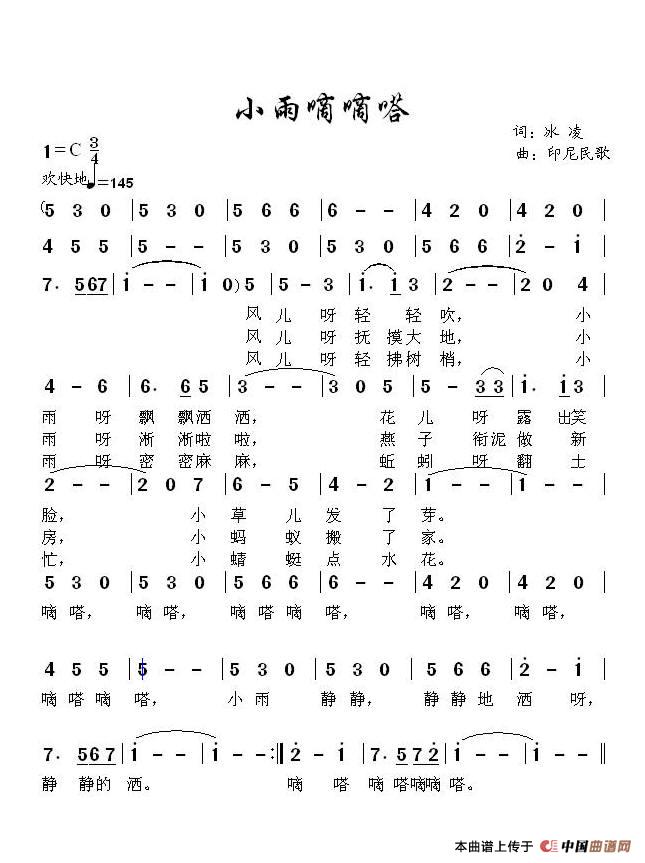 小雨嘀嘀嗒
词：冰 凌
1=C 3/4
曲：印尼民歌
欢快地♩=145
(5 3 0 | 5 3 0 | 5 6 6 | 6 - - | 4 2 0 | 4 2 0 |
4 5 5 | 5 - - | 5 3 0 | 5 3 0 | 5 6 6 | 2̇ - 1̇ |
7. 5 6 7 | 1̇ - - | 1̇ 0 ) 5 | 5 - 3 | 1̇. 1̇ 3 | 2 - - | 2 0 4 |
风 儿 呀 轻 轻 吹， 小
风 儿 呀 抚 摸 大 地， 小
风 儿 呀 轻 拂 树 梢， 小
4 - 6 | 6. 6 5 | 3 - - | 3 0 5 | 5 - 3 3 | 1̇. 1̇ 3 |
雨 呀 飘 飘 洒 洒， 花 儿 呀 露 出 笑
雨 呀 淅 淅 啦 啦， 燕 子 衔 泥 做 新
雨 呀 密 密 麻 麻， 蚯 蚓 呀 翻 土
2 - - | 2 0 7 | 6 - 5 | 4 - 2 | 1 - - | 1 - - |
脸， 小 草 儿 发 了 芽。
房， 小 蚂 蚁 搬 了 家。
忙， 小 蜻 蜓 点 水 花。
5 3 0 | 5 3 0 | 5 6 6 | 6 - - | 4 2 0 | 4 2 0 |
嘀 嗒， 嘀 嗒， 嘀 嗒 嘀 嗒， 嘀 嗒， 嘀 嗒，
4 5 5 | 5 - - | 5 3 0 | 5 3 0 | 5 6 6 | 2̇ - 1̇ |
嘀 嗒 嘀 嗒， 小 雨 静 静， 静 静 地 洒 呀，
7. 5 6 7 | 1̇ - - | 1̇ - - :‖ 2̇ - 1̇ | 7. 5 7 2̇ | 1̇ - - | 1̇ - - ‖
静 静 的 洒。 嘀 嗒 嘀 嗒嘀嘀 嗒。
本曲谱上传于 中国曲谱网